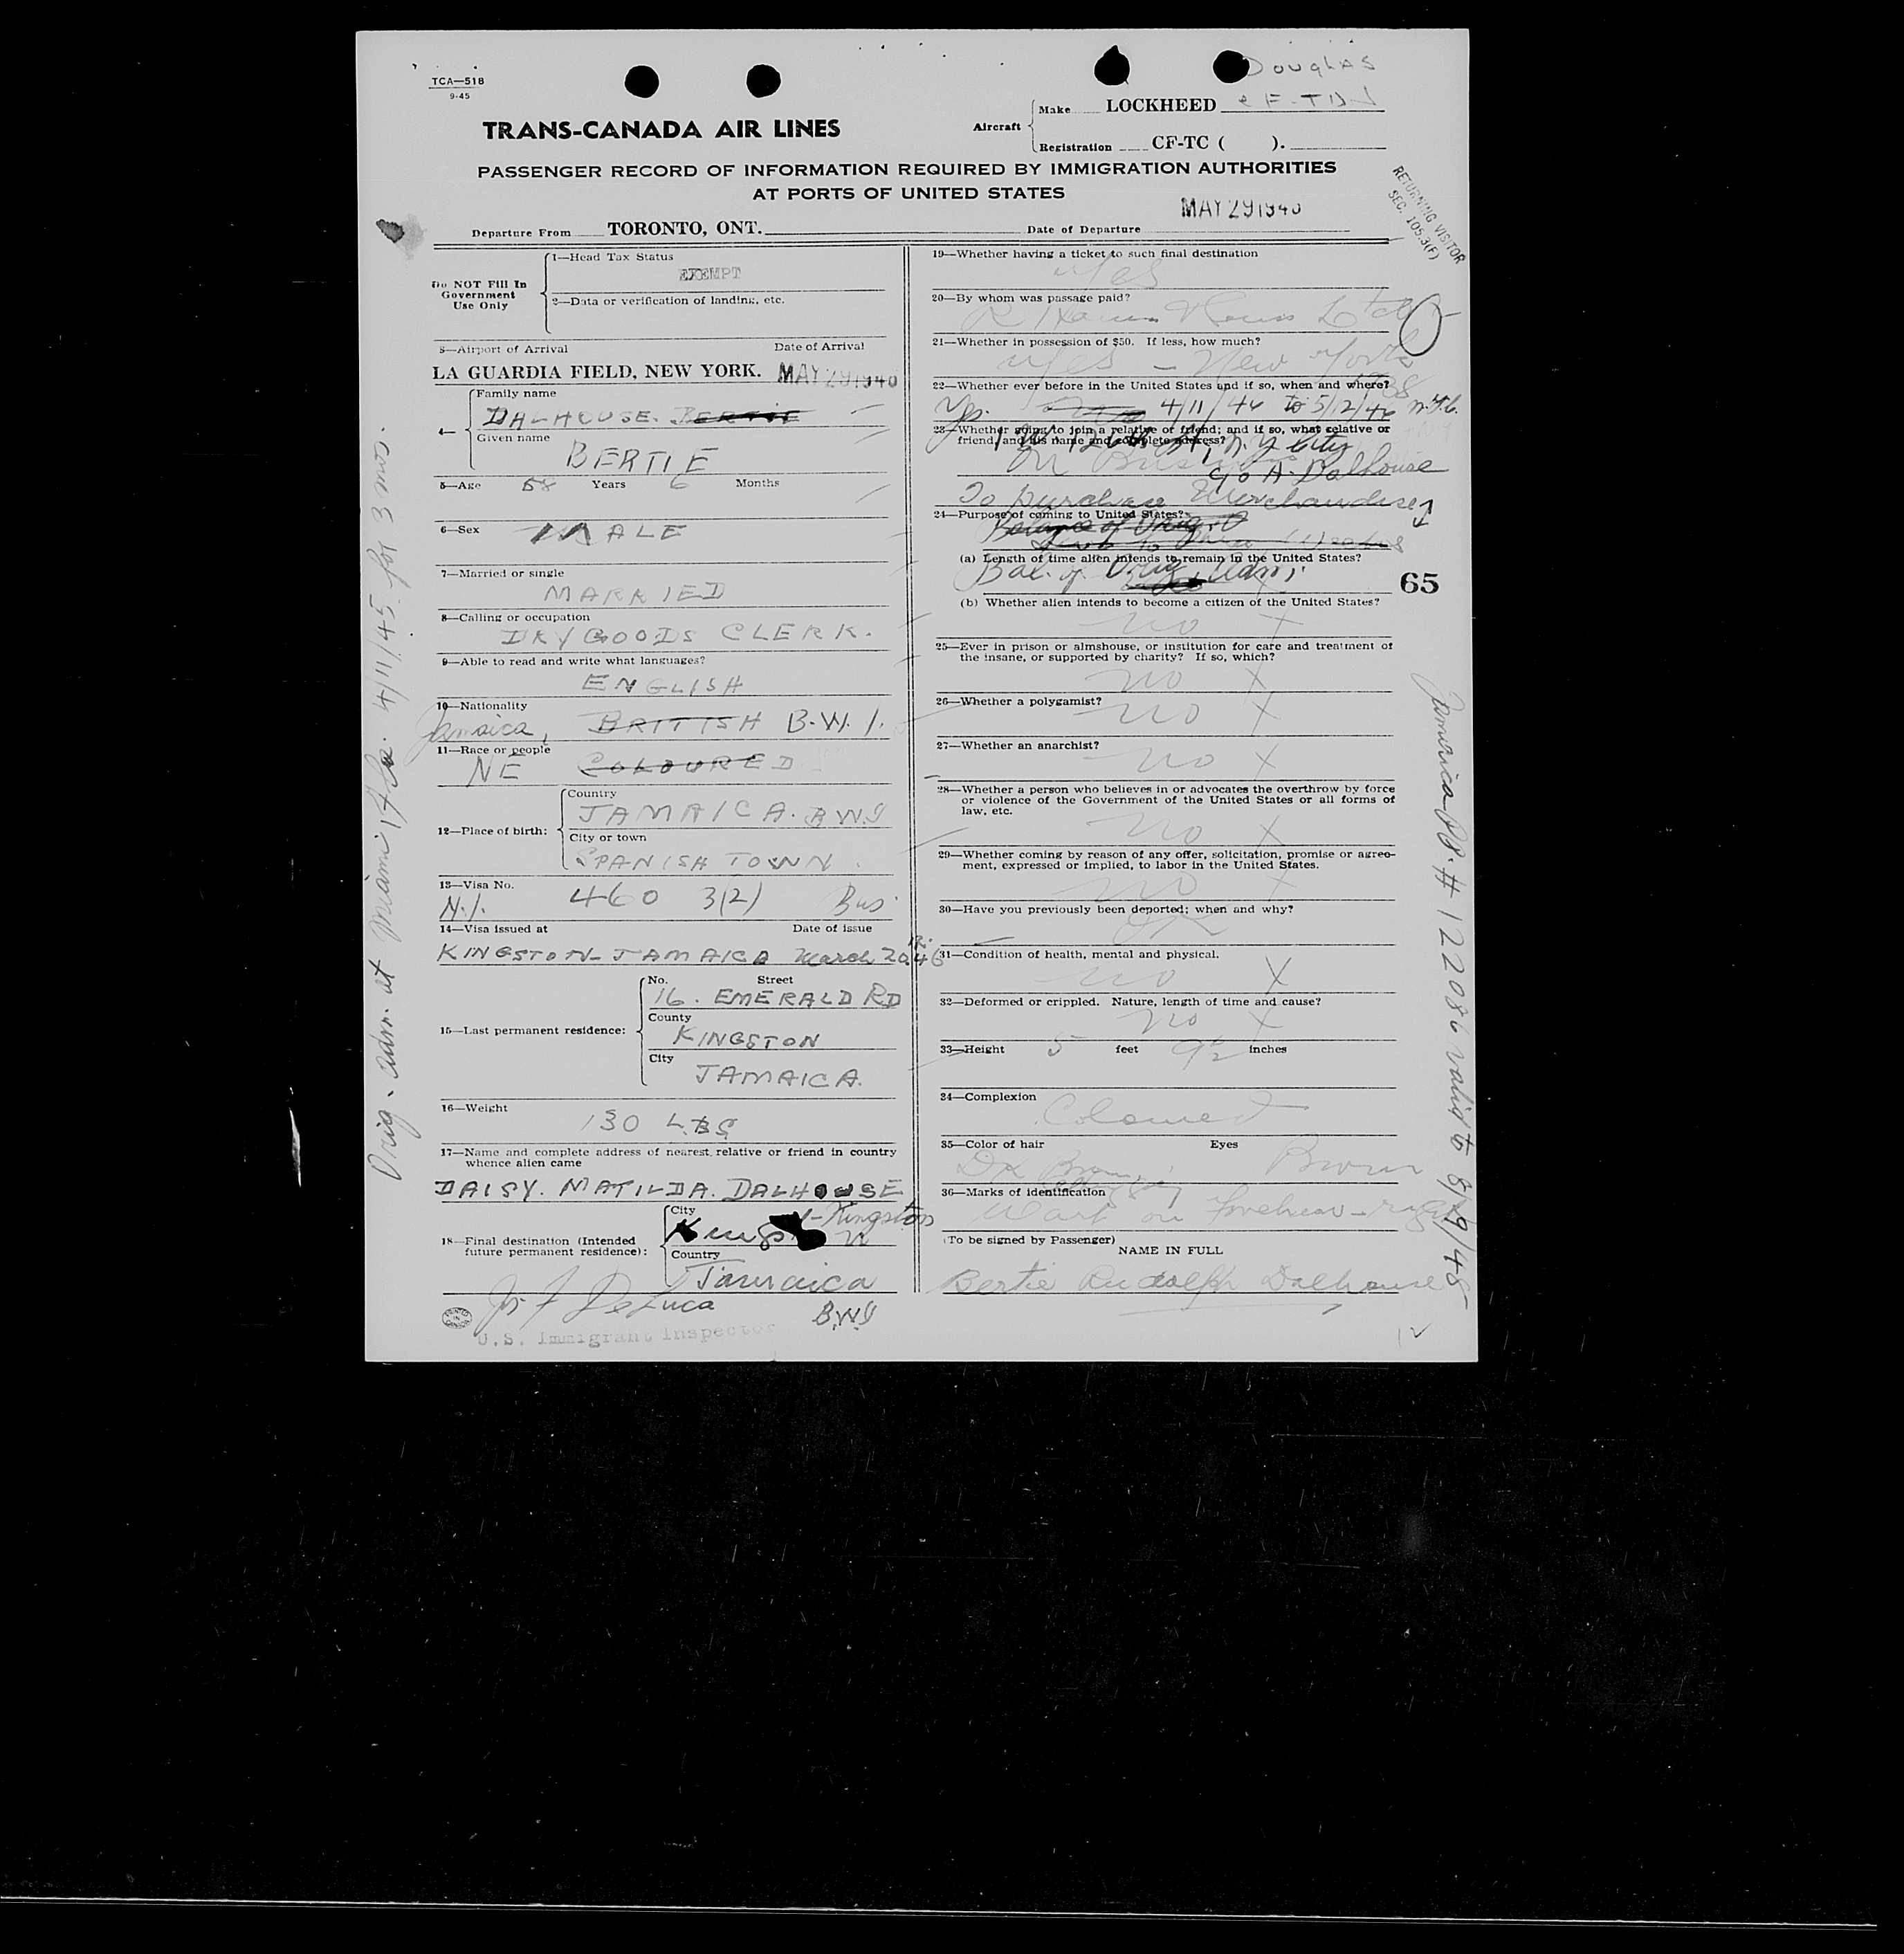 TCA—518
9-45
DOUGLAS
Aircraft
Make LOCKHEED CF-TDJ
Registration CF-TC ( ).
TRANS-CANADA AIR LINES
PASSENGER RECORD OF INFORMATION REQUIRED BY IMMIGRATION AUTHORITIES
AT PORTS OF UNITED STATES
RETURNING VISITOR
SEC. 105.3(F)
MAY 29 1946
Departure From TORONTO, ONT.
Date of Departure
Do NOT Fill In
Government
Use Only
1—Head Tax Status
EXEMPT
2—Data or verification of landing, etc.
3—Airport of Arrival Date of Arrival
LA GUARDIA FIELD, NEW YORK. MAY 29 1946
4—
Family name
DALHOUSE. BERTIE
Given name
BERTIE
5—Age 58 Years 6 Months
6—Sex MALE
7—Married or single
MARRIED
8—Calling or occupation
DRYGOODS CLERK.
9—Able to read and write what languages?
ENGLISH
10—Nationality
Jamaica, BRITISH B.W.I.
11—Race or people
NE COLOURED
12—Place of birth:
Country
JAMAICA. BWI
City or town
SPANISH TOWN.
13—Visa No.
N.I. 460 3(2) Bus.
14—Visa issued at Date of issue
KINGSTON-JAMAICA March 20 46
15—Last permanent residence:
No. Street
16. EMERALD RD
County
KINGSTON
City
JAMAICA.
16—Weight
130 LBS
17—Name and complete address of nearest relative or friend in country
whence alien came
DAISY. MATILDA. DALHOUSE
18—Final destination (Intended
future permanent residence):
City
Kingston
Country
Jamaica
B.W.I
Jos F DeLuca
U.S. Immigrant Inspector
Orig. adm. at Miami, Fla. 4/11/45 for 3 mos.
19—Whether having a ticket to such final destination
Yes
20—By whom was passage paid?
Ltd
21—Whether in possession of $50. If less, how much?
Yes — New York
22—Whether ever before in the United States and if so, when and where?
Yes. 4/11/46 to 5/2/46 N.Y.C.
23—Whether going to join a relative or friend; and if so, what relative or
friend, and his name and complete address?
N.Y City
On Business
c/o A. Dalhouse
To purchase Merchandise
24—Purpose of coming to United States?
Balance of Orig.
(a) Length of time alien intends to remain in the United States?
Bal. of Orig. Adm.
65
(b) Whether alien intends to become a citizen of the United States?
No X
25—Ever in prison or almshouse, or institution for care and treatment of
the insane, or supported by charity? If so, which?
No X
26—Whether a polygamist?
No X
27—Whether an anarchist?
No X
28—Whether a person who believes in or advocates the overthrow by force
or violence of the Government of the United States or all forms of
law, etc.
No X
29—Whether coming by reason of any offer, solicitation, promise or agree-
ment, expressed or implied, to labor in the United States.
No X
30—Have you previously been deported; when and why?
31—Condition of health, mental and physical.
No X
32—Deformed or crippled. Nature, length of time and cause?
No X
33—Height 5 feet 9½ inches
34—Complexion
Coloured
35—Color of hair Eyes
Dk Brown Brown
36—Marks of identification
Wart on Forehead-right
(To be signed by Passenger)
NAME IN FULL
Bertie Rudolph Dalhouse
12
Jamaica PP. # 122086 valid to 8/29/48